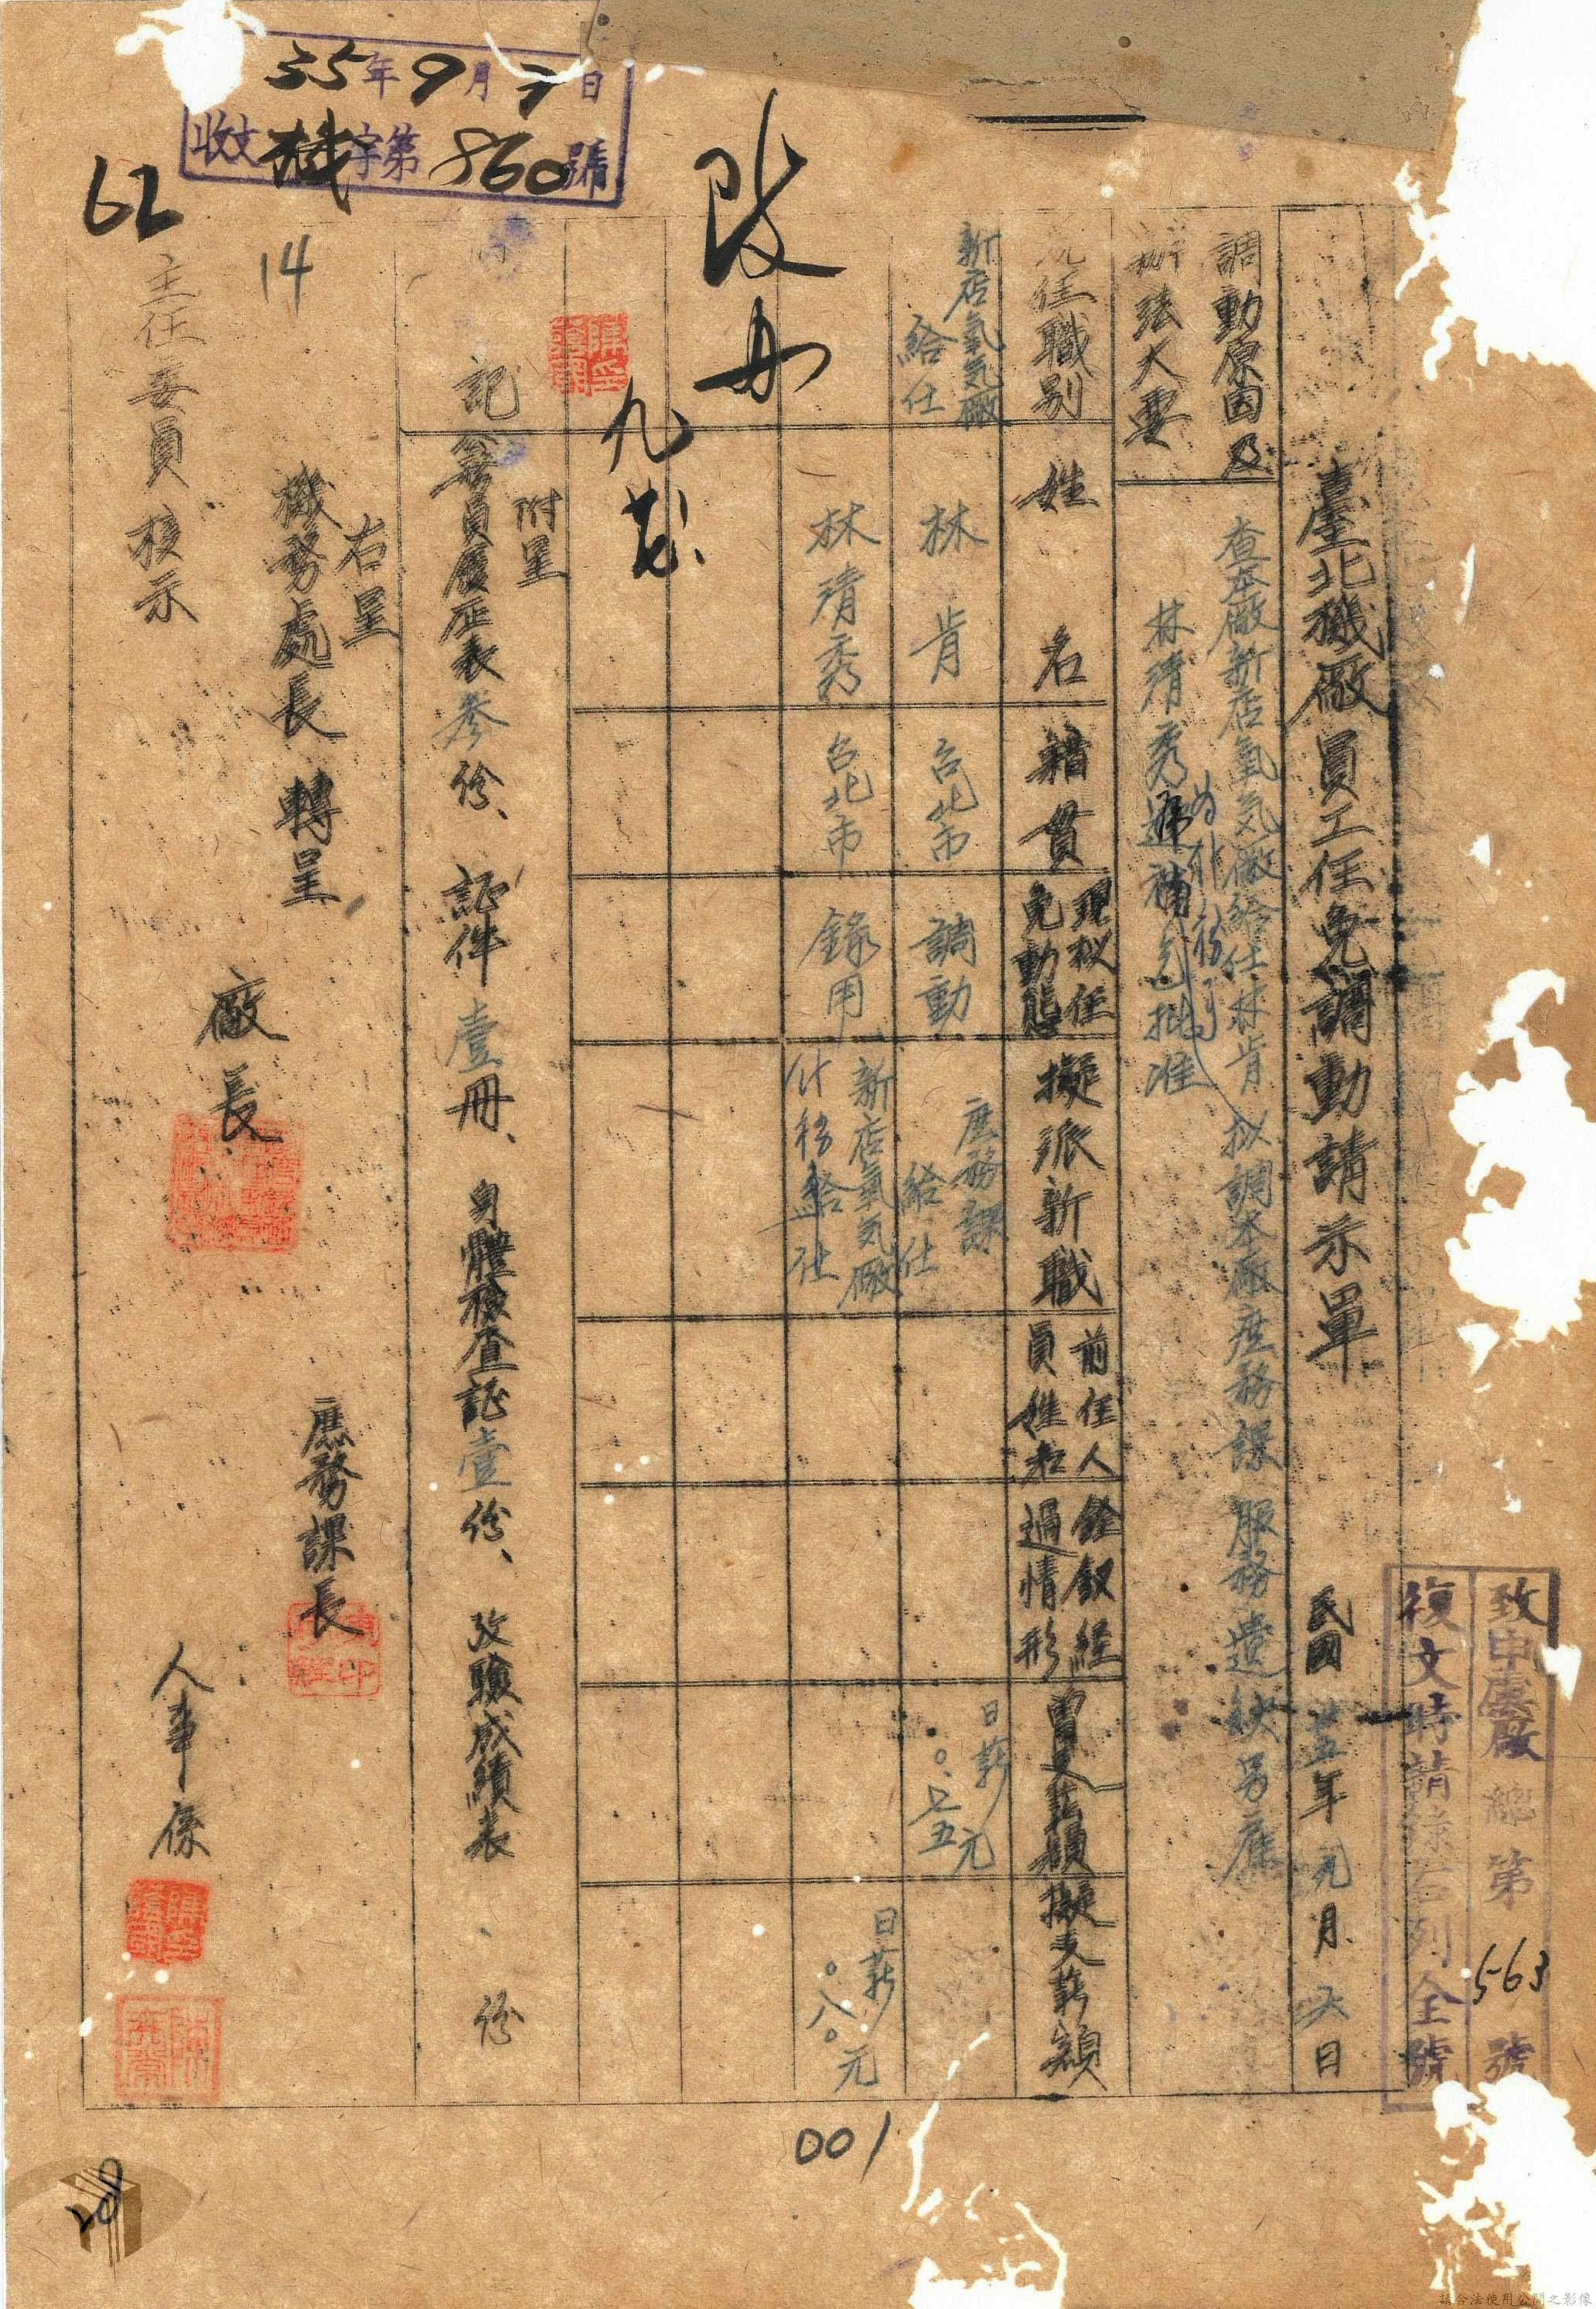 致申臺廠總第563號
復文時請錄右列全號
臺北機廠員工任免調動請示單
民國卅五年元月
日
調動原因及
辦法大要
查本廠新店氧気廠給仕林肯拟調本廠庶務課服務遺缺另雇
林清秀
批准
現任職別
姓名
籍貫
現拟任
免動態
擬派新職
前任人
員姓名
銓敘経
過情形
曽支薪額
擬支薪額
新店氧気廠
給仕
林肯
台北市
調動
庶務課
給仕
日薪
元
林清秀
台北市
錄用
新店氧気廠
計務給仕
日薪
〇.八〇元
附呈
記
員履歷表參份、證件壹冊、身體檢查証壹份、攷驗成績表、份
右呈
機務處長轉呈
主任委員核示
廠長
庶務課長
人事係
35年9月7日
收文機字第860號
62
14
001
請合法使用公開之影像